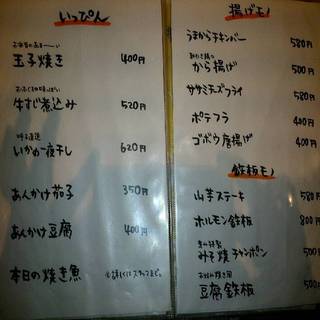 いっぴん
玉子焼き 400円
牛すじ煮込み 520円
いかの一夜干し 620円
あんかけ茄子 350円
あんかけ豆腐 400円
本日の焼き魚
揚げモノ
うまからチキンバー 580円
から揚げ 500円
ササミチーズフライ 580円
ポテフラ 400円
ゴボウ唐揚げ 400円
鉄板モノ
山芋ステーキ 580
ホルモン鉄板 800
みそ焼チャンポン 500
豆腐鉄板 500